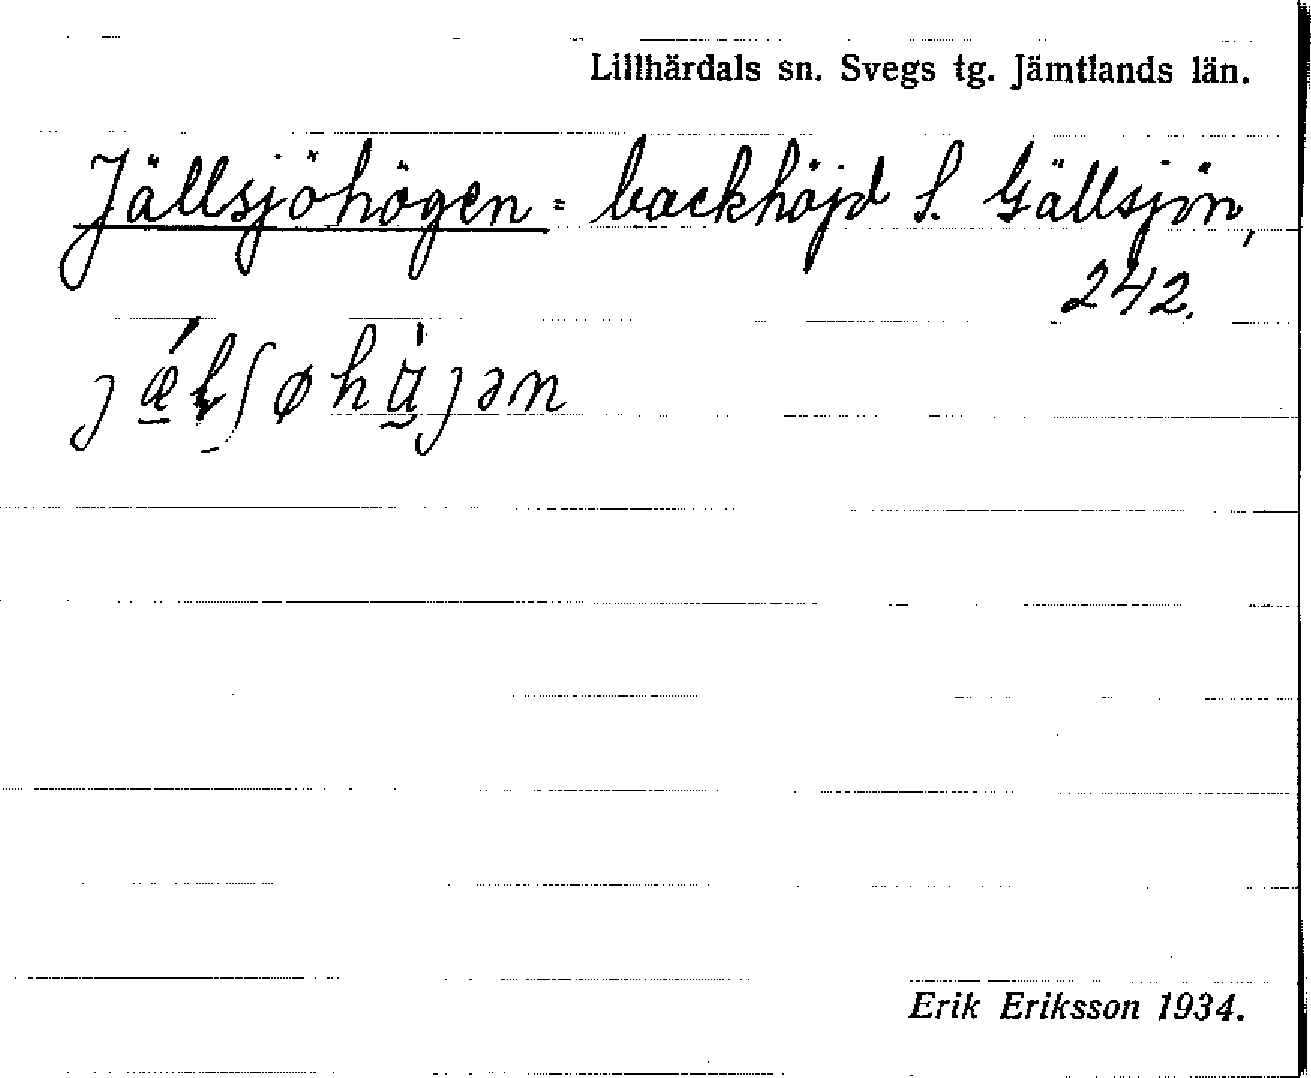 Lillhärdals sn. Svegs tg. Jämtlands län.
Jällsjöhögen = backhöjd S. Gällsjön,
242.
Erik Eriksson 1934.